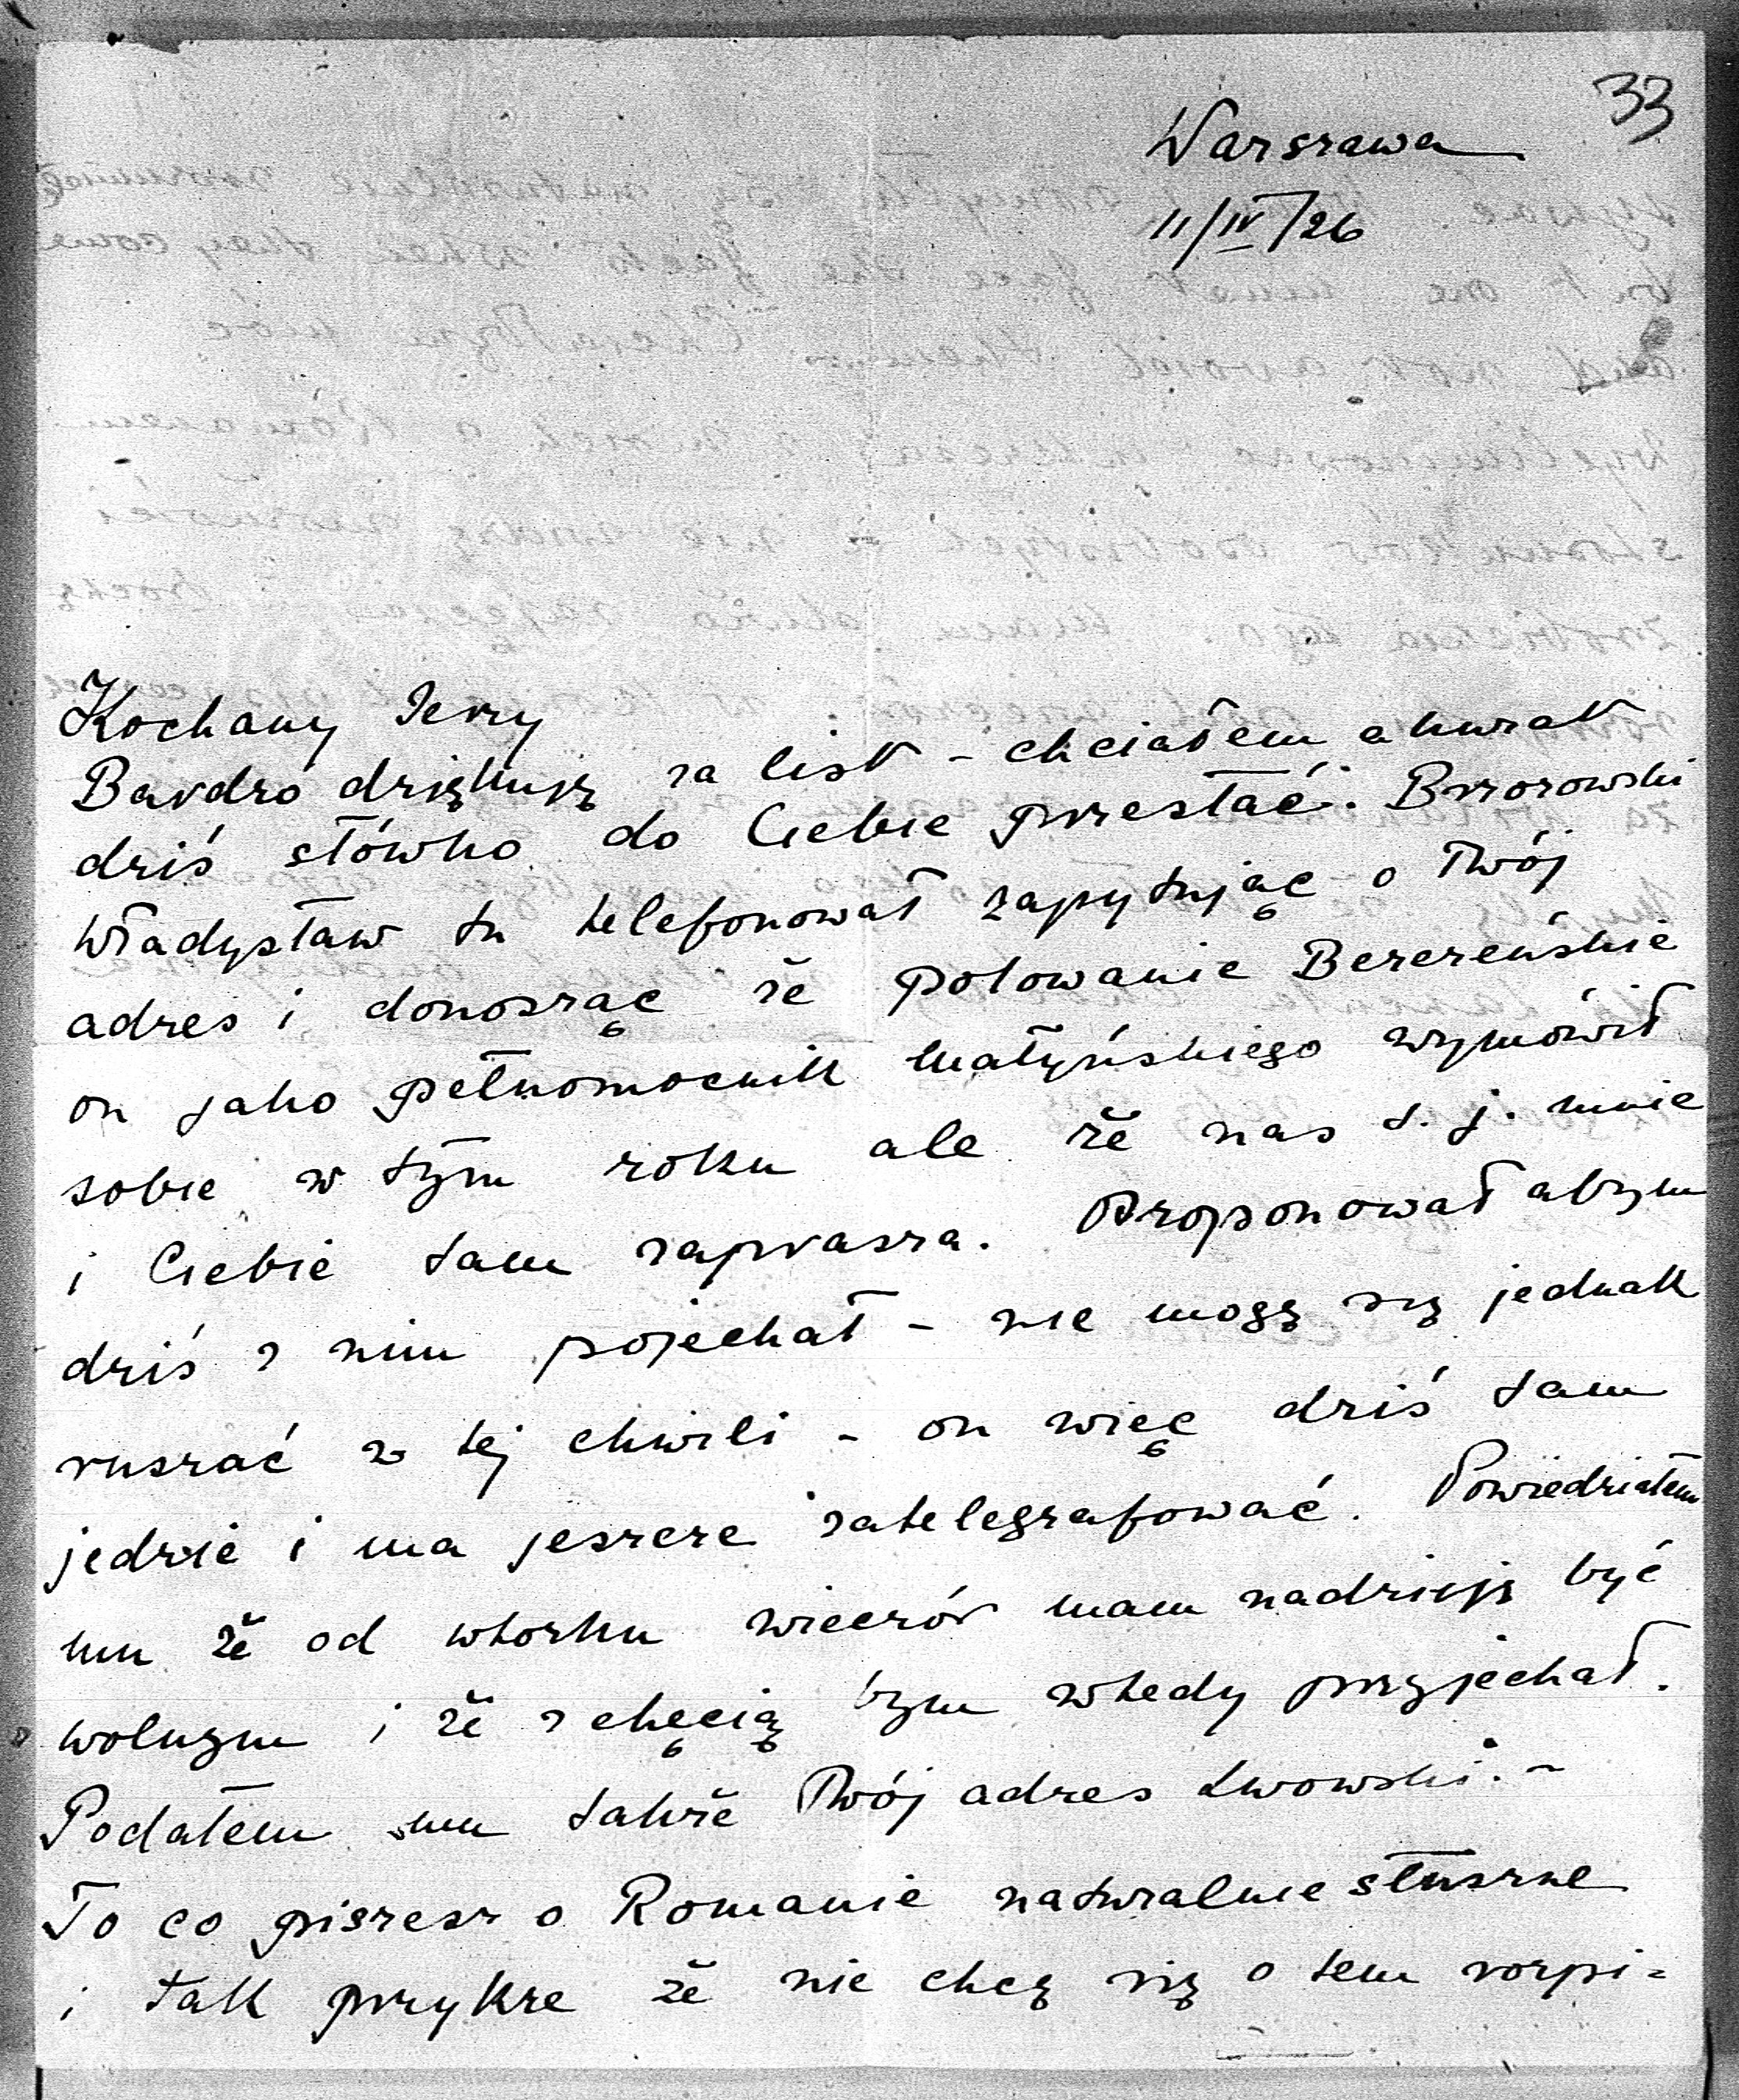 33
Warszawa
11/IV/26
Kochany Jerzy
Bardzo dziękuję za list - chciałem akurat
dziś słówko do Ciebie przesłać. Brzozowski
Władysław tu telefonował zapytując o Twój
adres i donosząc że polowanie Bereźeńskie
on jako pełnomocnik Małyńskiego wymówił
sobie w tym roku ale że nas t. j. mnie
i Ciebie tam zaprasza. Proponował abym
dziś z nim pojechał - nie mogę się jednak
ruszać w tej chwili - on więc dziś tam
jedzie i ma jeszcze zatelegrafować. Powiedziałem
mu że od wtorku wieczór mam nadzieję być
wolnym i że z chęcią bym wtedy przyjechał.
Podałem mu także Twój adres Lwowski. -
To co piszesz o Romanie naturalnie słuszne
i tak przykre że nie chcę się o tem rozpi=